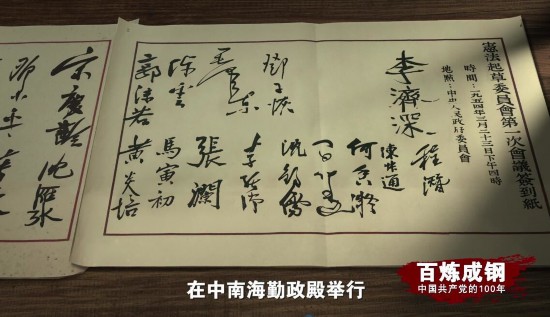 憲法起草委員會第一次會議簽到紙
時間：一九五四年三月二十三日下午四時
地點：中央人民政府委員會
李濟深
程潛
陳叔通
何香凝
鄧子恢
沈鈞儒
毛澤東
張瀾
陳雲
馬寅初
郭沫若
黃炎培
宋慶齡
沈雁冰
百炼成钢
中国共产党的100年
在中南海勤政殿举行